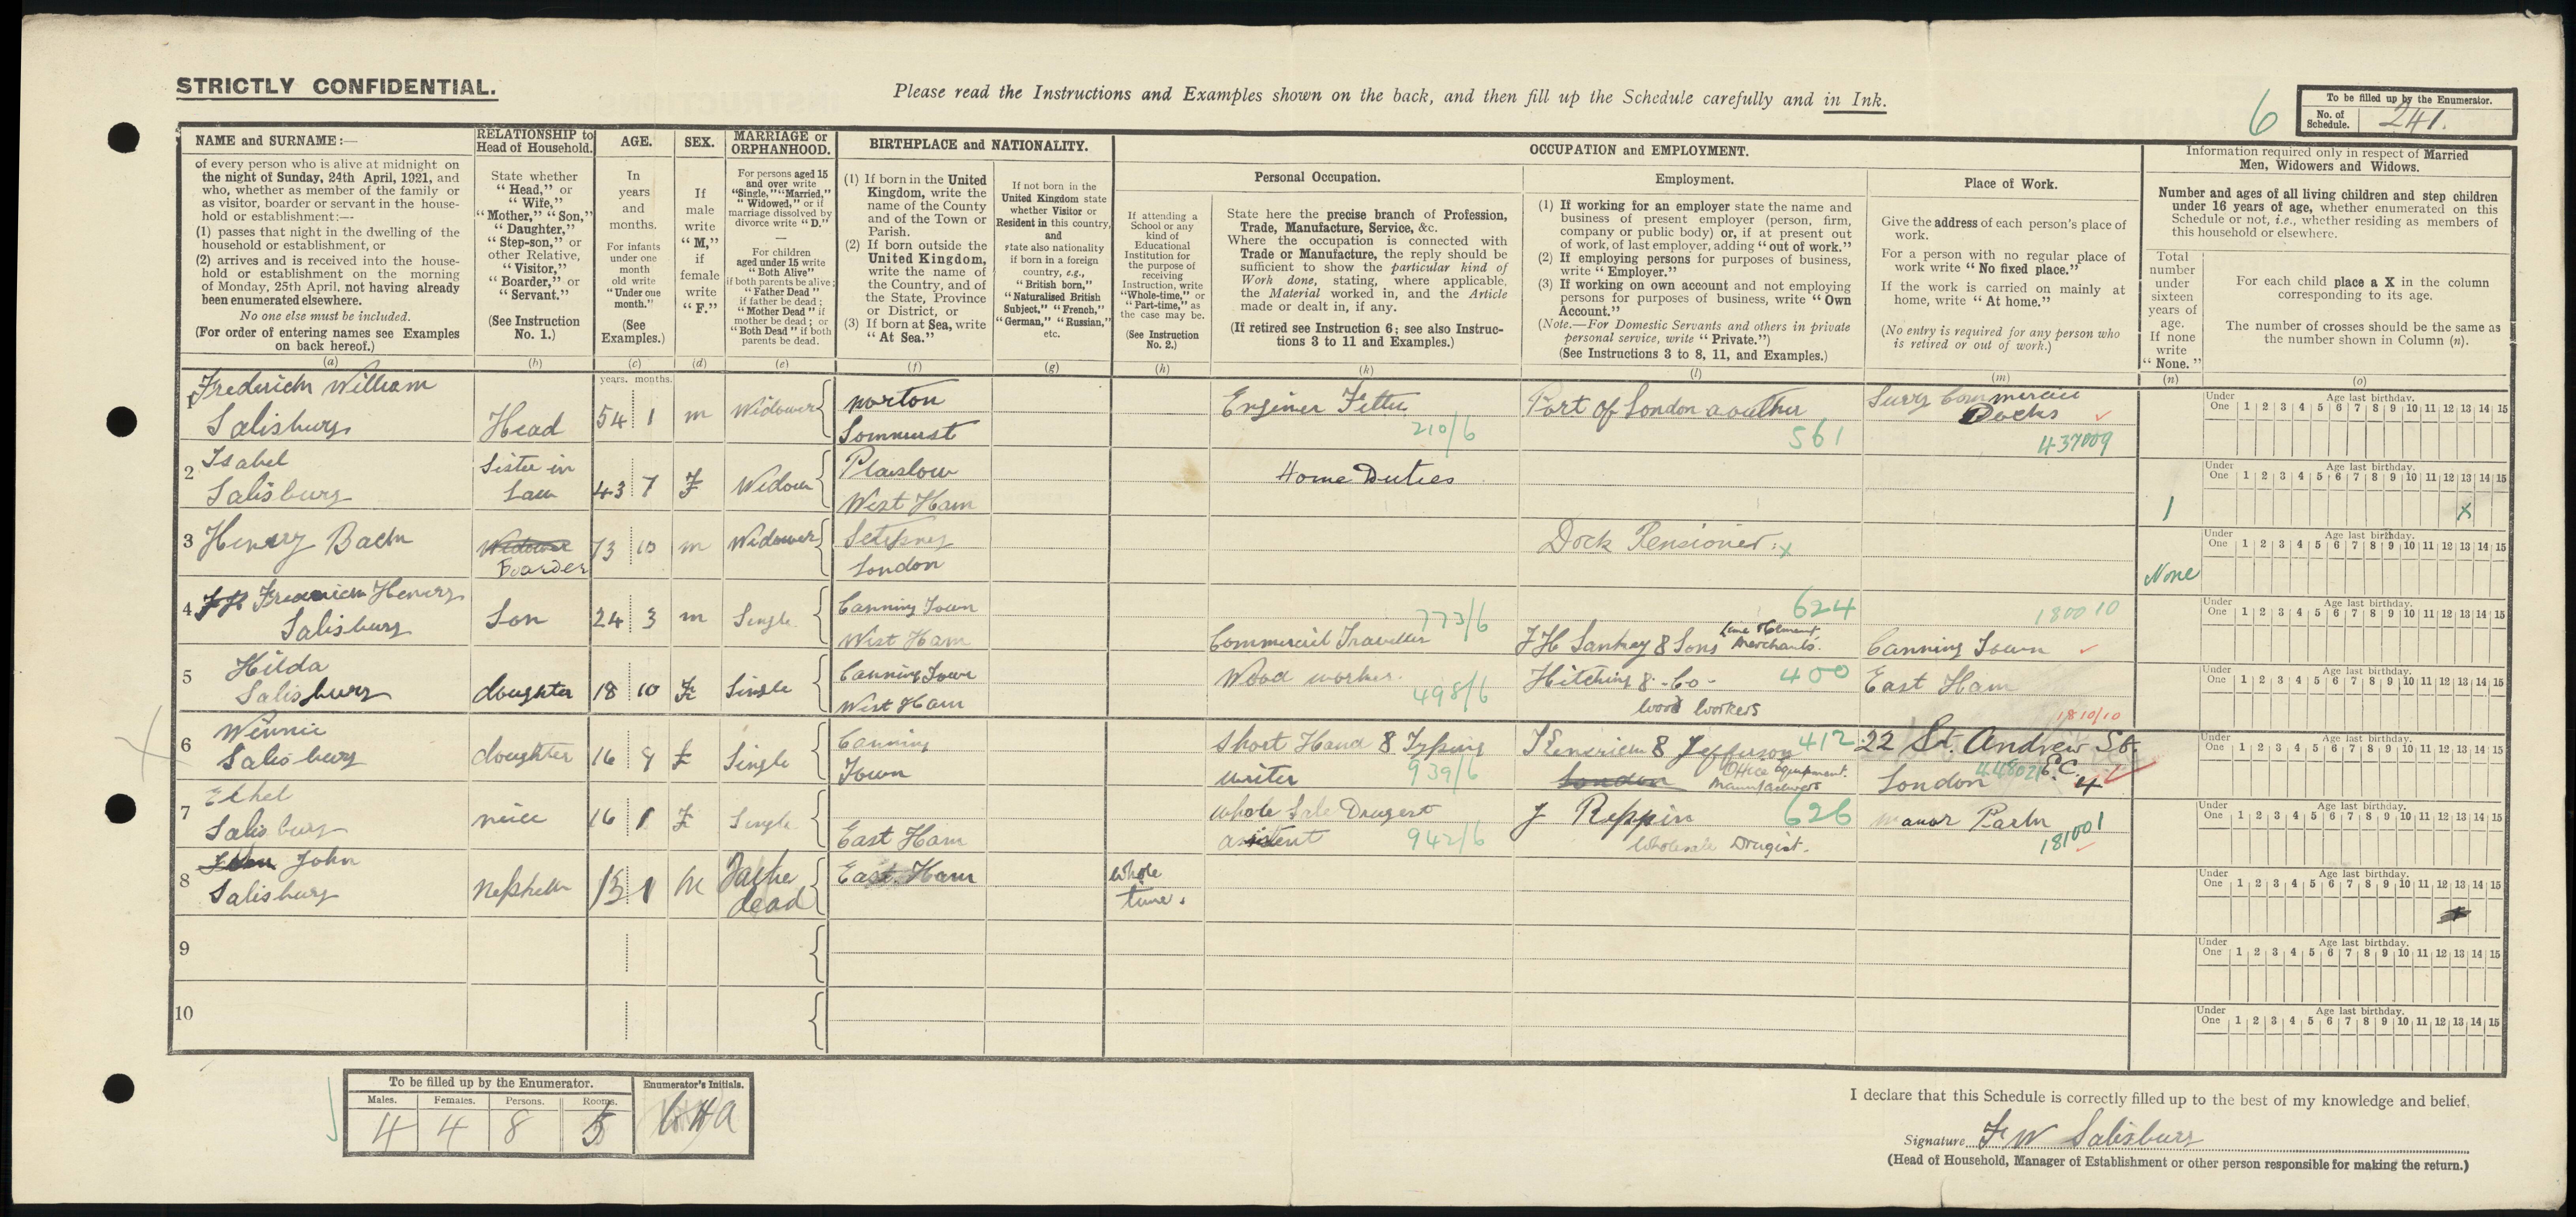 STRICTLY CONFIDENTIAL.
Please read the Instructions and Examples shown on the back, and then fill up the Schedule carefully and in Ink.
6
To be filled up by the Enumerator.
No. of Schedule. 241.
NAME and SURNAME:—
of every person who is alive at midnight on
the night of Sunday, 24th April, 1921, and
who, whether as member of the family or
as visitor, boarder or servant in the house-
hold or establishment:—
(1) passes that night in the dwelling of the
household or establishment, or
(2) arrives and is received into the house-
hold or establishment on the morning
of Monday, 25th April, not having already
been enumerated elsewhere.
No one else must be included.
(For order of entering names see Examples
on back hereof.)
(a)
RELATIONSHIP to
Head of Household.
State whether
"Head," or
"Wife,"
"Mother," "Son,"
"Daughter,"
"Step-son," or
other Relative,
"Visitor,"
"Boarder," or
"Servant."
(See Instruction
No. 1.)
(b)
AGE.
In
years
and
months.
For infants
under one
month
old write
"Under one
month."
(See
Examples.)
(c)
SEX.
If
male
write
"M,"
if
female
write
"F."
(d)
MARRIAGE or
ORPHANHOOD.
For persons aged 15
and over write
"Single," "Married,"
"Widowed," or if
marriage dissolved by
divorce write "D."
—
For children
aged under 15 write
"Both Alive"
if both parents be alive;
"Father Dead"
if father be dead;
"Mother Dead" if
mother be dead; or
"Both Dead" if both
parents be dead.
(e)
BIRTHPLACE and NATIONALITY.
(1) If born in the United
Kingdom, write the
name of the County
and of the Town or
Parish.
(2) If born outside the
United Kingdom,
write the name of
the Country, and of
the State, Province
or District, or
(3) If born at Sea, write
"At Sea."
(f)
If not born in the
United Kingdom state
whether Visitor or
Resident in this country,
and
state also nationality
if born in a foreign
country, e.g.,
"British born,"
"Naturalised British
Subject," "French,"
"German," "Russian,"
etc.
(g)
OCCUPATION and EMPLOYMENT.
If attending a
School or any
kind of
Educational
Institution for
the purpose of
receiving
Instruction, write
"Whole-time," or
"Part-time," as
the case may be.
(See Instruction
No. 2.)
(h)
Personal Occupation.
State here the precise branch of Profession,
Trade, Manufacture, Service, &c.
Where the occupation is connected with
Trade or Manufacture, the reply should be
sufficient to show the particular kind of
Work done, stating, where applicable,
the Material worked in, and the Article
made or dealt in, if any.
(If retired see Instruction 6; see also Instruc-
tions 3 to 11 and Examples.)
(k)
Employment.
(1) If working for an employer state the name and
business of present employer (person, firm,
company or public body) or, if at present out
of work, of last employer, adding "out of work."
(2) If employing persons for purposes of business,
write "Employer."
(3) If working on own account and not employing
persons for purposes of business, write "Own
Account."
(Note.—For Domestic Servants and others in private
personal service, write "Private.")
(See Instructions 3 to 8, 11, and Examples.)
(l)
Place of Work.
Give the address of each person's place of
work.
For a person with no regular place of
work write "No fixed place."
If the work is carried on mainly at
home, write "At home."
(No entry is required for any person who
is retired or out of work.)
(m)
Information required only in respect of Married
Men, Widowers and Widows.
Number and ages of all living children and step children
under 16 years of age, whether enumerated on this
Schedule or not, i.e., whether residing as members of
this household or elsewhere.
Total
number
under
sixteen
years of
age.
If none
write
"None."
(n)
For each child place a X in the column
corresponding to its age.
The number of crosses should be the same as
the number shown in Column (n).
(o)
years. months.
1 Frederick William Salisbury Head 54 1 m Widower Norton Sommerst Enginer Fitter 210/6 Port of London 561 Surry Commercial Docks 437009
Under One 1 2 3 4 5 6 7 8 9 10 11 12 13 14 15 Age last birthday.
2 Isabel Salisbury Sister in Law 43 7 F Widow Plaislow West Ham Home Duties 1 X
Under One 1 2 3 4 5 6 7 8 9 10 11 12 13 14 15 Age last birthday.
3 Henry Widower Boarder 73 10 m Widower London Dock Pensioner x None
Under One 1 2 3 4 5 6 7 8 9 10 11 12 13 14 15 Age last birthday.
4 Frederick Henry Salisbury Son 24 3 m Single Canning Town West Ham Commercial Traveller 773/6 J H Sankey & Sons Lime & Cement Merchants. 624 Canning Town 180010
Under One 1 2 3 4 5 6 7 8 9 10 11 12 13 14 15 Age last birthday.
5 Hilda Salisbury daughter 18 10 F Single Canning Town West Ham Wood worker. 498/6 Hitching & Co Wood Workers 400 East Ham 1810/10
Under One 1 2 3 4 5 6 7 8 9 10 11 12 13 14 15 Age last birthday.
6 Winnie Salisbury daughter 16 9 F Single Canning Town Short Hand & Typing writer 939/6 & Jefferson London Office Equipment Manufacturers 412 22 St. Andrew St. London E.C. 4 448021
Under One 1 2 3 4 5 6 7 8 9 10 11 12 13 14 15 Age last birthday.
7 Ethel Salisbury neice 16 1 F Single East Ham whole Sale Drugest asistent 942/6 J Reppin Wholesale Drugist. 626 Manor Park 181001
Under One 1 2 3 4 5 6 7 8 9 10 11 12 13 14 15 Age last birthday.
8 John Salisbury Nephew 13 1 M Father dead East Ham whole time.
Under One 1 2 3 4 5 6 7 8 9 10 11 12 13 14 15 Age last birthday.
9
Under One 1 2 3 4 5 6 7 8 9 10 11 12 13 14 15 Age last birthday.
10
Under One 1 2 3 4 5 6 7 8 9 10 11 12 13 14 15 Age last birthday.
To be filled up by the Enumerator. Enumerator's Initials.
Males. Females. Persons. Rooms.
4 4 8 5
I declare that this Schedule is correctly filled up to the best of my knowledge and belief,
Signature F W Salisbury
(Head of Household, Manager of Establishment or other person responsible for making the return.)